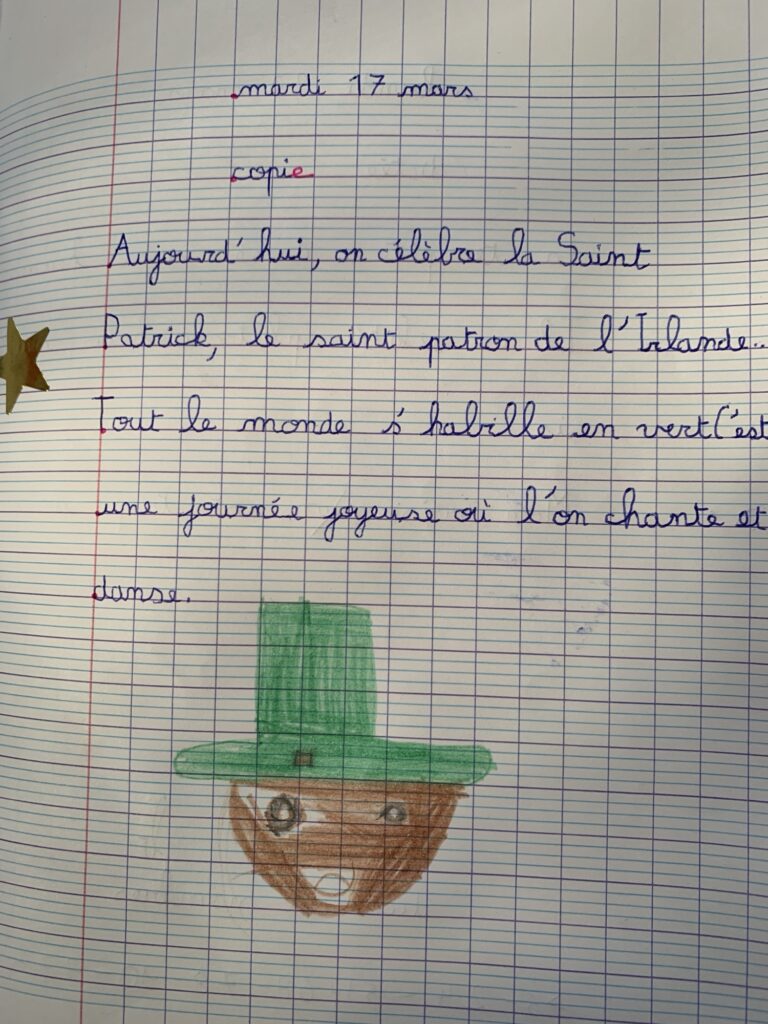 mardi 17 mars
copie
Aujourd'hui, on célèbre la Saint
Patrick, le saint patron de l'Irlande..
Tout le monde s'habille en vert C'est
une journée joyeuse où l'on chante et
danse.